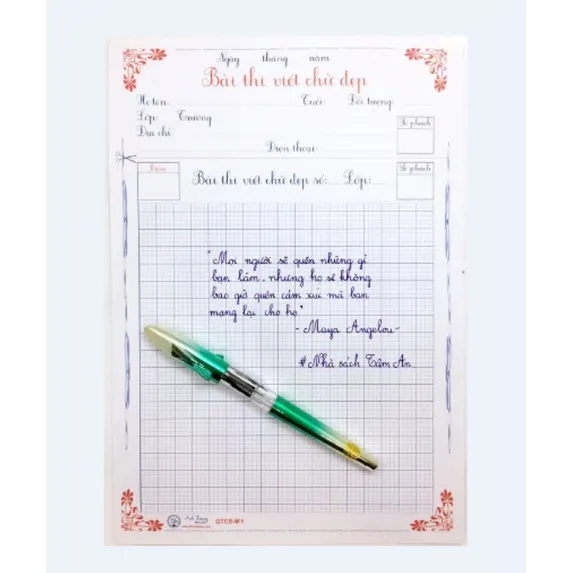 Ngày tháng năm
Bài thi viết chữ đẹp
Họ tên: Tuổi: Đối tượng:
Lớp: Trường
Địa chỉ
Số phách
Điện thoại:
Điểm
Bài thi viết chữ đẹp số: Lớp:
Số phách
"Mọi người sẽ quên những gì
bạn làm, nhưng họ sẽ không
bao giờ quên cảm xúc mà bạn
mang lại cho họ"
- Maya Angelou -
# Nhà sách Tâm An
QTCĐ-M1